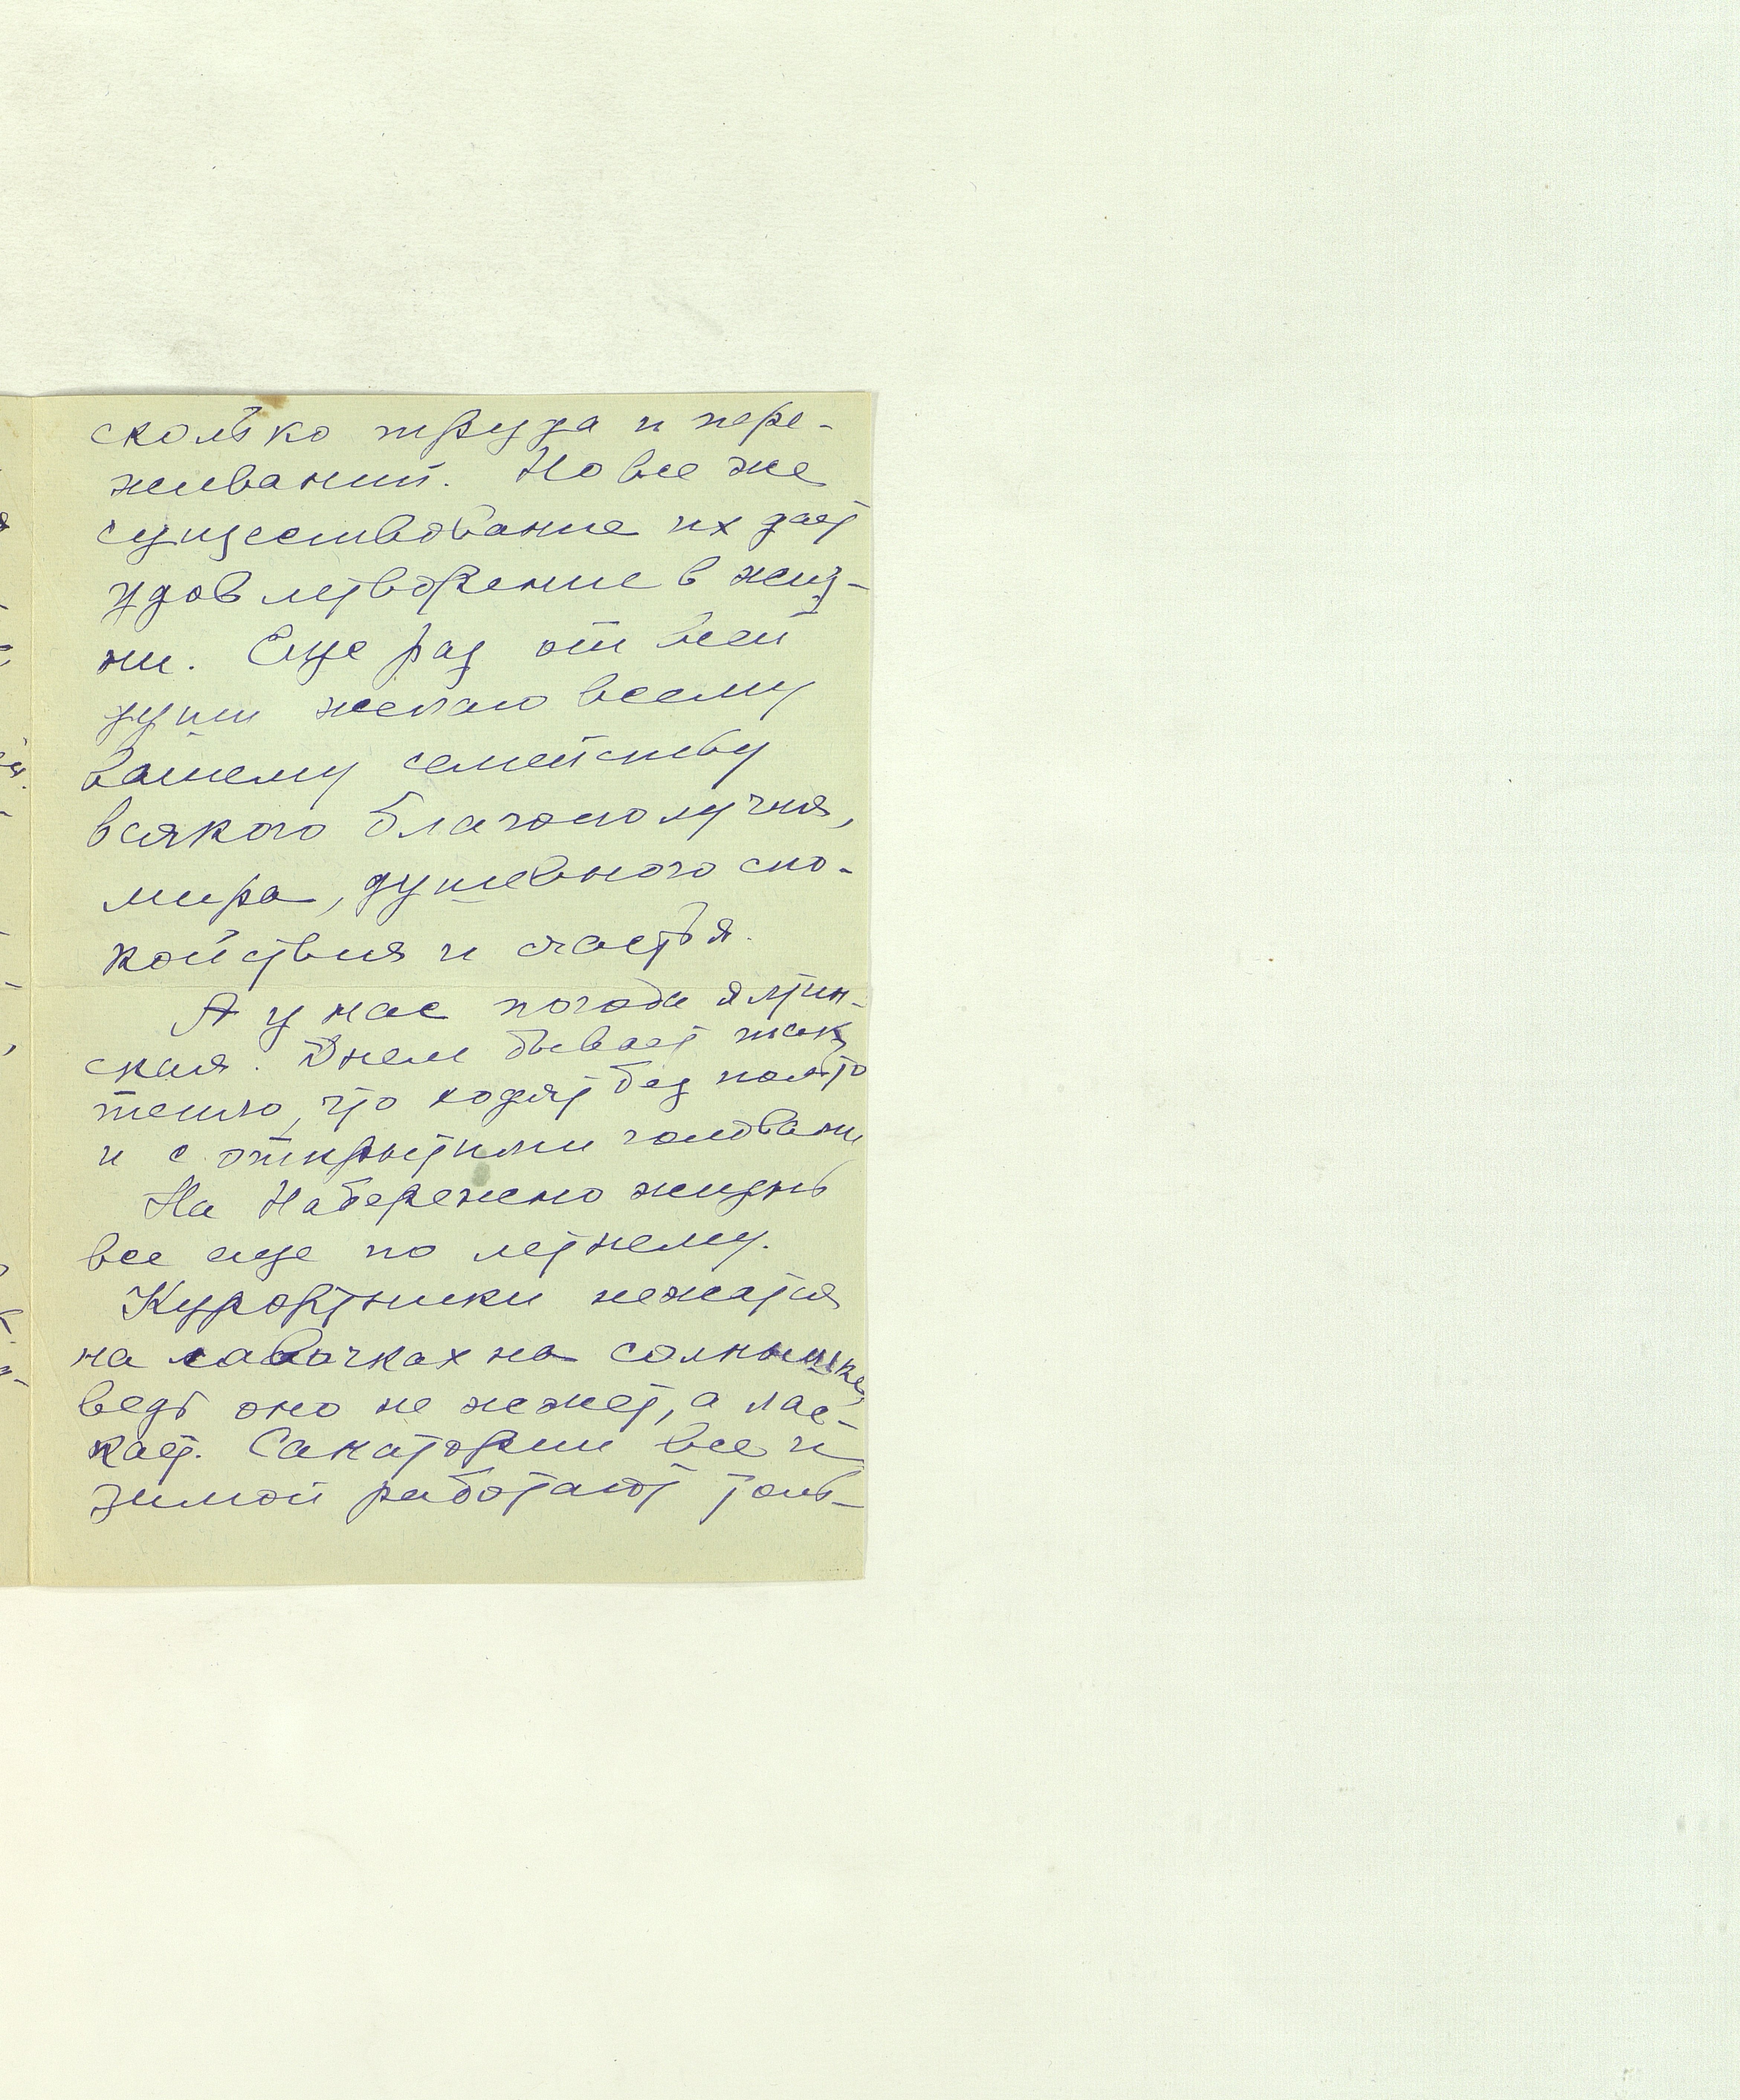 сколько труда и пере-
живаний. Но все же
существование их дает
удовлетворение в жиз-
ни. Еще раз от всей
души желаю всему
вашему семейству
всякого благополучия,
мира, душевного спо-
койствия и счастья.
А у нас погода ялтин-
ская. Днем бывает так
тепло, что ходят без пальто
и с открытыми головами
На Набережно жизнь
все еще по летнему.
Курортники нежатся
на лавочках на солнышке,
ведь оно не жжет, а лас-
кает. Санатории все и
зимой работают толь-